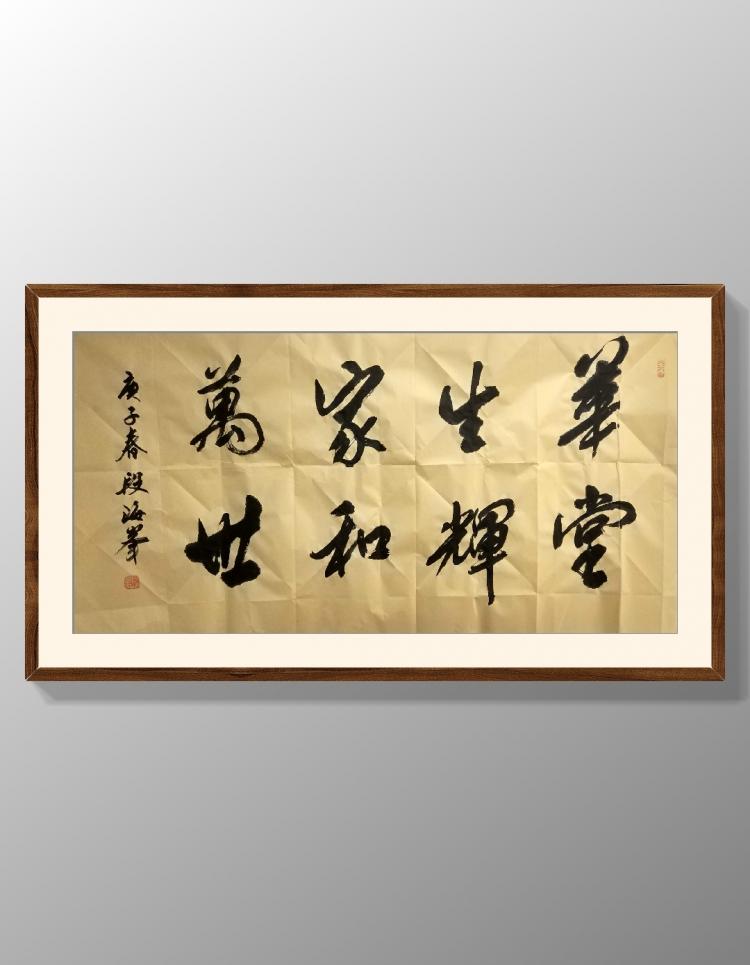 華堂
生輝
家和
萬世
庚子春段海峯